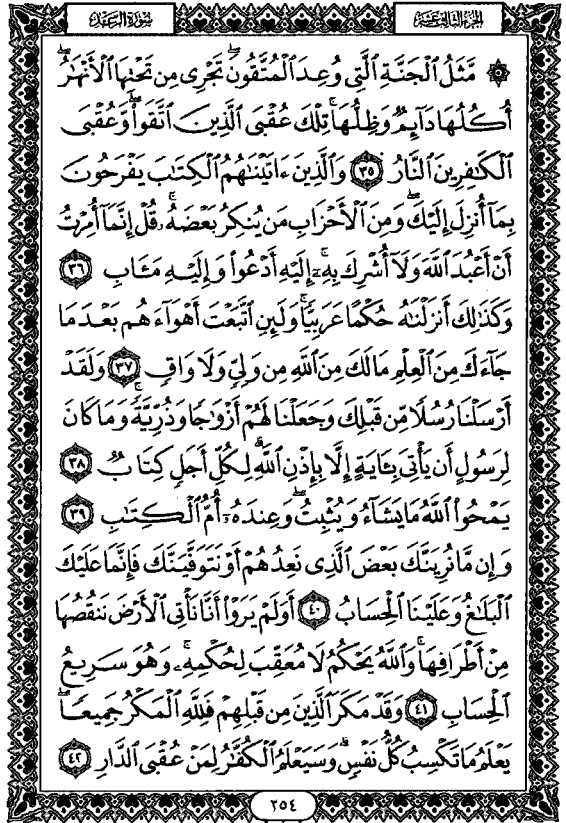 سورة الرعد
الجزء الثالث عشر
۞ مَّثَلُ الْجَنَّةِ الَّتِي وُعِدَ الْمُتَّقُونَ ۖ تَجْرِي مِن تَحْتِهَا الْأَنْهَٰرُ ۖ
أُكُلُهَا دَآئِمٌ وَظِلُّهَا ۚ تِلْكَ عُقْبَى الَّذِينَ اتَّقَوا ۖ وَّعُقْبَى
الْكَٰفِرِينَ النَّارُ ٣٥ وَالَّذِينَ ءَاتَيْنَٰهُمُ الْكِتَٰبَ يَفْرَحُونَ
بِمَآ أُنزِلَ إِلَيْكَ ۖ وَمِنَ الْأَحْزَابِ مَن يُنكِرُ بَعْضَهُۥ ۚ قُلْ إِنَّمَآ أُمِرْتُ
أَنْ أَعْبُدَ اللَّهَ وَلَآ أُشْرِكَ بِهِۦٓ ۚ إِلَيْهِ أَدْعُوا وَإِلَيْهِ مَـَٔابِ ٣٦
وَكَذَٰلِكَ أَنزَلْنَٰهُ حُكْمًا عَرَبِيًّا ۚ وَلَئِنِ اتَّبَعْتَ أَهْوَآءَهُم بَعْدَمَا
جَآءَكَ مِنَ الْعِلْمِ مَالَكَ مِنَ اللَّهِ مِن وَلِيٍّ وَلَا وَاقٍ ٣٧ وَلَقَدْ
أَرْسَلْنَا رُسُلًا مِّن قَبْلِكَ وَجَعَلْنَا لَهُمْ أَزْوَٰجًا وَذُرِّيَّةً ۚ وَمَا كَانَ
لِرَسُولٍ أَن يَأْتِيَ بِـَٔايَةٍ إِلَّا بِإِذْنِ اللَّهِ ۗ لِكُلِّ أَجَلٍ كِتَابٌ ٣٨
يَمْحُوا اللَّهُ مَا يَشَآءُ وَيُثْبِتُ ۖ وَعِندَهُۥٓ أُمُّ الْكِتَٰبِ ٣٩
وَإِن مَّا نُرِيَنَّكَ بَعْضَ الَّذِي نَعِدُهُمْ أَوْ نَتَوَفَّيَنَّكَ فَإِنَّمَا عَلَيْكَ
الْبَلَٰغُ وَعَلَيْنَا الْحِسَابُ ٤٠ أَوَلَمْ يَرَوْا أَنَّا نَأْتِي الْأَرْضَ نَنقُصُهَا
مِنْ أَطْرَافِهَا ۚ وَاللَّهُ يَحْكُمُ لَا مُعَقِّبَ لِحُكْمِهِۦ ۚ وَهُوَ سَرِيعُ
الْحِسَابِ ٤١ وَقَدْ مَكَرَ الَّذِينَ مِن قَبْلِهِمْ فَلِلَّهِ الْمَكْرُ جَمِيعًا ۖ
يَعْلَمُ مَا تَكْسِبُ كُلُّ نَفْسٍ ۗ وَسَيَعْلَمُ الْكُفَّٰرُ لِمَنْ عُقْبَى الدَّارِ ٤٢
٢٥٤